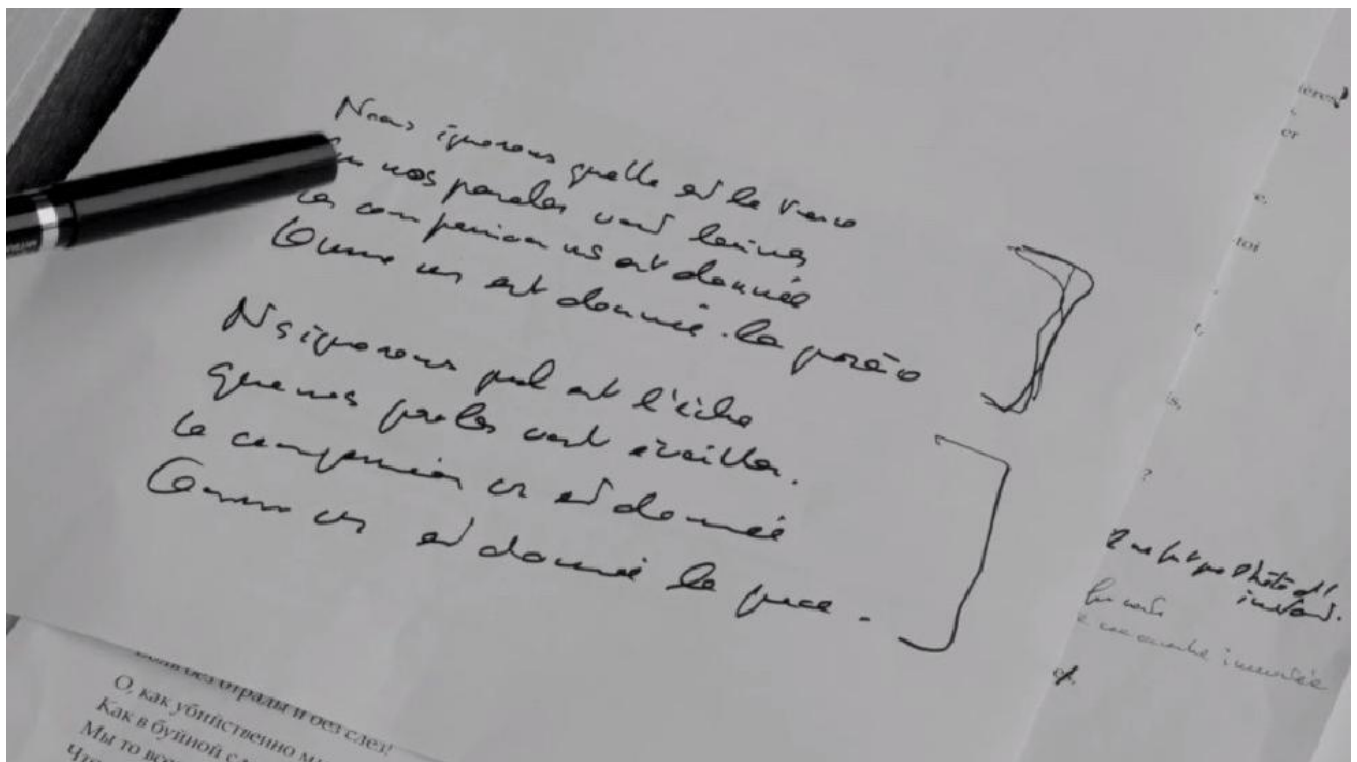 Nous ignorons quelle est la trace
que nos paroles vont laisser
La compassion ns est donnée
Comme ns est donnée la grâce
Ns ignorons quel est l'écho
que nos paroles vont éveiller.
La compassion ns est donnée
Comme ns est donnée la grâce.
er
e,
toi
is,
?
отрады и без слез!
О, как убийственно м
Как в буйной с
Мы то